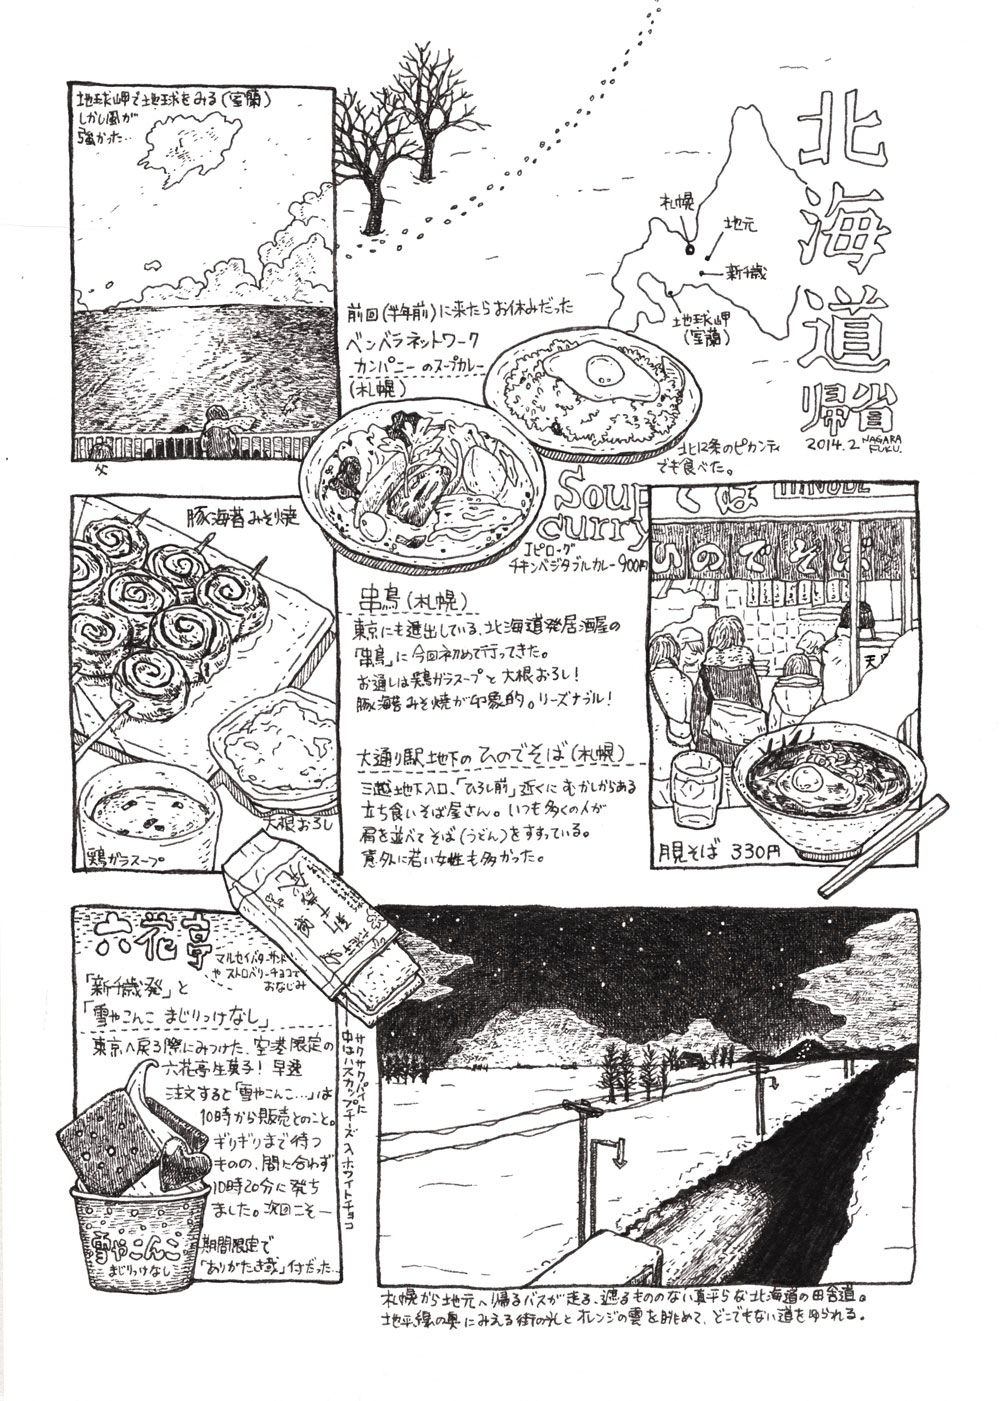 北海道
帰省
2014.2 NAGARA FUKU.
地球岬で地球をみる(室蘭)
しかし風が
強かった…
父
札幌
地元
新千歳
地球岬
(室蘭)
前回(半年前)に来たらお休みだった
ベンベラネットワーク
カンパニーのスープカレー
(札幌)
北12条のピカンティ
でも食べた。
Soup
curry
エピローグ
チキンベジタブルカレー900円
豚海苔みそ焼
大根おろし
鶏ガラスープ
串鳥(札幌)
東京にも進出している、北海道発居酒屋の
「串鳥」に今回初めて行ってきた。
お通しは鶏ガラスープと大根おろし!
豚海苔みそ焼が印象的。リーズナブル!
大通り駅地下のひのでそば(札幌)
三越地下入口、「ひろし前」近くにむかしからある
立ち食いそば屋さん。いつも多くの人が
肩を並べてそば(うどん)をすすっている。
意外に若い女性も多かった。
そば HINODE
ひのでそば
天
月見そば 330円
六花亭
マルセイバターサンド
やストロベリーチョコで
おなじみ
「新千歳発」と
「雪やこんこ まじりっけなし」
東京へ戻る際にみつけた、空港限定の
六花亭生菓子!早速
注文すると「雪やこんこ…」は
10時から販売とのこと。
ギリギリまで待つ
ものの、間に合わず
10時20分に発ち
ました。次回こそ—
期間限定で
付だった…
雪やこんこ
まじりっけなし
サクサクパイに
中はハスカップチーズ入ホワイトチョコ
札幌から地元へ帰るバスが走る、遮るもののない真平らな北海道の田舎道。
地平線の奥にみえる街の光とオレンジの雲を眺めて、どこでもない道を帰られる。